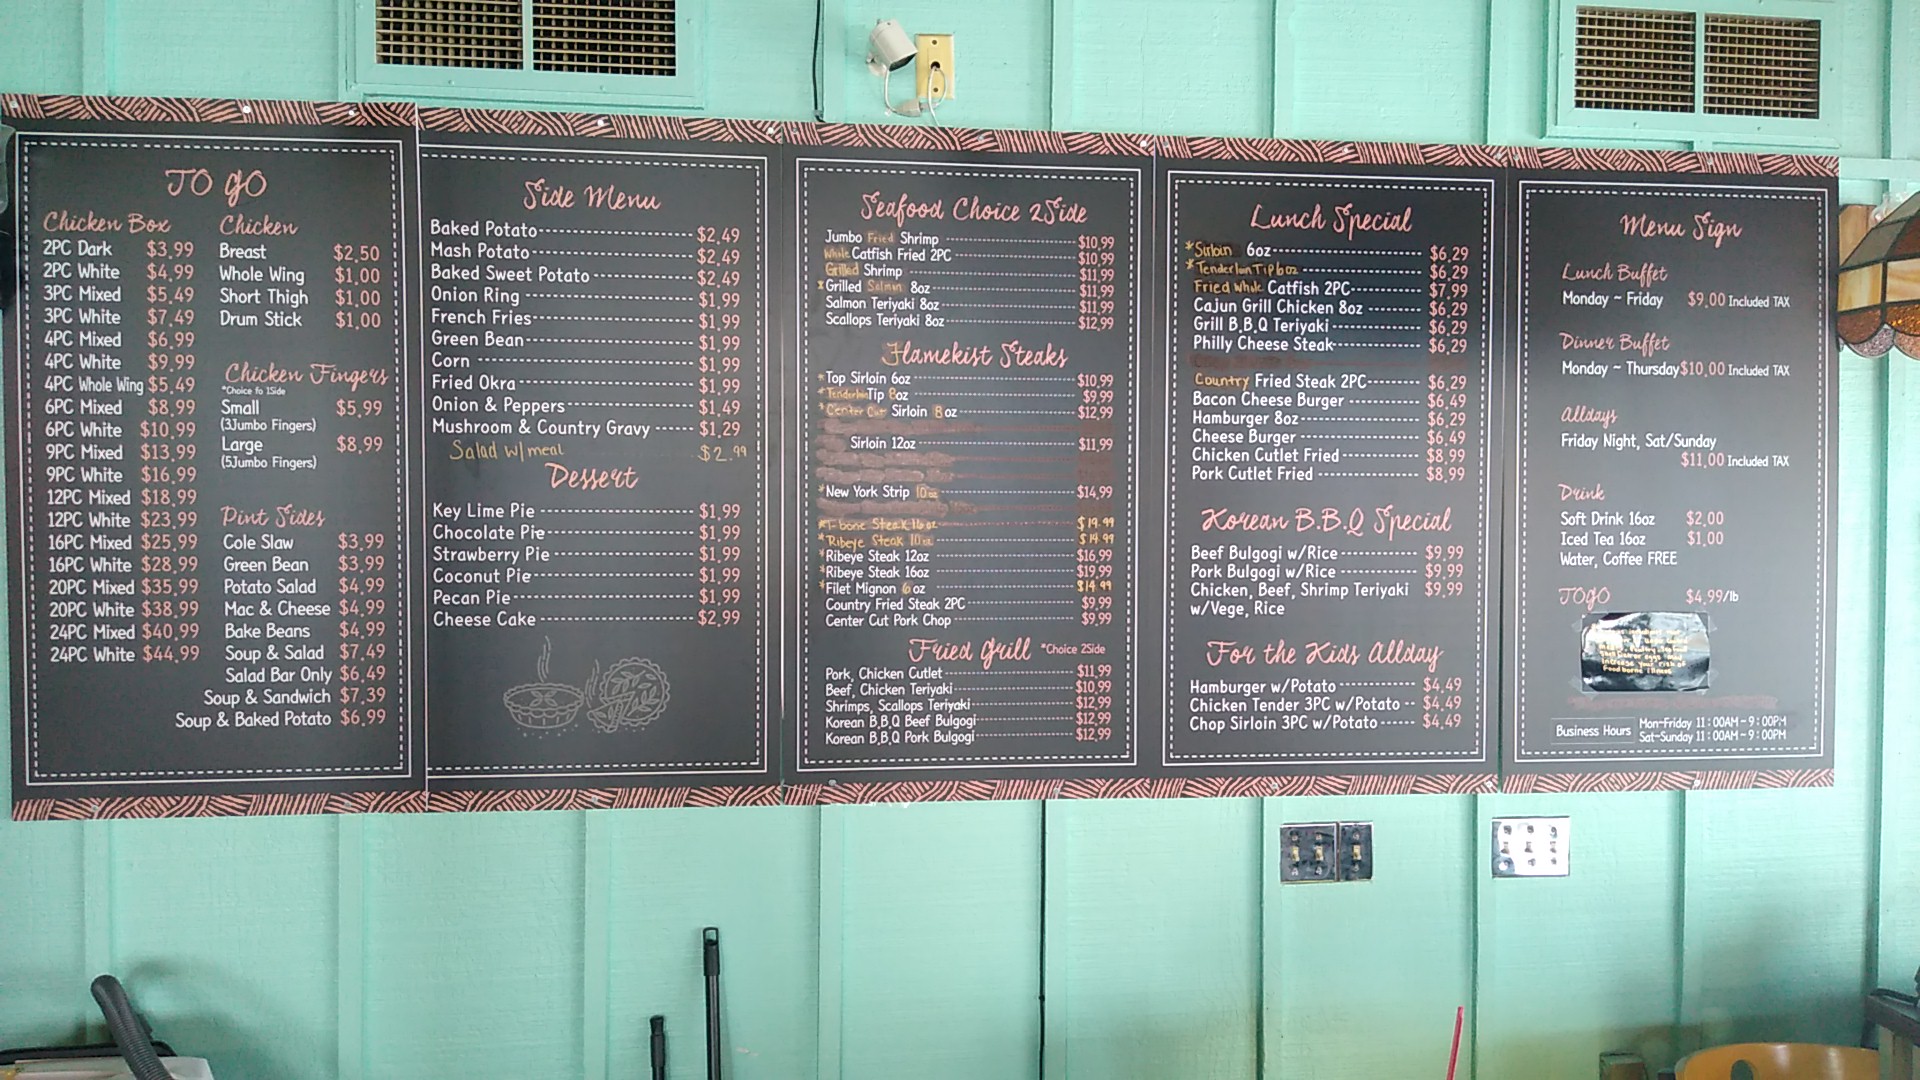 TO GO
Chicken Box
2PC Dark $3.99
2PC White $4.99
3PC Mixed $5.49
3PC White $7.49
4PC Mixed $6.99
4PC White $9.99
4PC Whole Wing $5.49
6PC Mixed $8.99
6PC White $10.99
9PC Mixed $13.99
9PC White $16.99
12PC Mixed $18.99
12PC White $23.99
16PC Mixed $25.99
16PC White $28.99
20PC Mixed $35.99
20PC White $38.99
24PC Mixed $40.99
24PC White $44.99
Chicken
Breast $2.50
Whole Wing $1.00
Short Thigh $1.00
Drum Stick $1.00
Chicken Fingers
*Choice fo 1Side
Small $5.99
(3Jumbo Fingers)
Large $8.99
(5Jumbo Fingers)
Pint Sides
Cole Slaw $3.99
Green Bean $3.99
Potato Salad $4.99
Mac & Cheese $4.99
Bake Beans $4.99
Soup & Salad $7.49
Salad Bar Only $6.49
Soup & Sandwich $7.39
Soup & Baked Potato $6.99
Side Menu
Baked Potato $2.49
Mash Potato $2.49
Baked Sweet Potato $2.49
Onion Ring $1.99
French Fries $1.99
Green Bean $1.99
Corn $1.99
Fried Okra $1.99
Onion & Peppers $1.49
Mushroom & Country Gravy $1.29
Salad w/meal $2.99
Dessert
Key Lime Pie $1.99
Chocolate Pie $1.99
Strawberry Pie $1.99
Coconut Pie $1.99
Pecan Pie $1.99
Cheese Cake $2.99
Seafood Choice 2Side
Jumbo Fried Shrimp $10.99
Whole Catfish Fried 2PC $10.99
Grilled Shrimp $11.99
*Grilled Salmon 8oz $11.99
Salmon Teriyaki 8oz $11.99
Scallops Teriyaki 8oz $12.99
Flamekist Steaks
*Top Sirloin 6oz $10.99
*Tenderloin Tip 8oz $9.99
*Center Cut Sirloin 8oz $12.99
Sirloin 12oz $11.99
*New York Strip 10oz $14.99
*T-bone Steak 16oz $19.99
*Ribeye Steak 10oz $14.99
*Ribeye Steak 12oz $16.99
*Ribeye Steak 16oz $19.99
*Filet Mignon 6oz $14.99
Country Fried Steak 2PC $9.99
Center Cut Pork Chop $9.99
Fried Grill *Choice 2Side
Pork, Chicken Cutlet $11.99
Beef, Chicken Teriyaki $10.99
Shrimps, Scallops Teriyaki $12.99
Korean B.B.Q Beef Bulgogi $12.99
Korean B.B.Q Pork Bulgogi $12.99
Lunch Special
*Sirloin 6oz $6.29
*Tenderloin Tip 6oz $6.29
Fried Whole Catfish 2PC $7.99
Cajun Grill Chicken 8oz $6.29
Grill B.B.Q Teriyaki $6.29
Philly Cheese Steak $6.29
Country Fried Steak 2PC $6.29
Bacon Cheese Burger $6.49
Hamburger 8oz $6.29
Cheese Burger $6.49
Chicken Cutlet Fried $8.99
Pork Cutlet Fried $8.99
Korean B.B.Q Special
Beef Bulgogi w/Rice $9.99
Pork Bulgogi w/Rice $9.99
Chicken, Beef, Shrimp Teriyaki $9.99
w/Vege, Rice
For the Kids Allday
Hamburger w/Potato $4.49
Chicken Tender 3PC w/Potato $4.49
Chop Sirloin 3PC w/Potato $4.49
Menu Sign
Lunch Buffet
Monday ~ Friday $9.00 Included TAX
Dinner Buffet
Monday ~ Thursday $10.00 Included TAX
Alldays
Friday Night, Sat/Sunday
$11.00 Included TAX
Drink
Soft Drink 16oz $2.00
Iced Tea 16oz $1.00
Water, Coffee FREE
TOGO $4.99/lb
increase your risk of
foodborne illness
Business Hours
Mon-Friday 11:00AM - 9:00PM
Sat-Sunday 11:00AM - 9:00PM